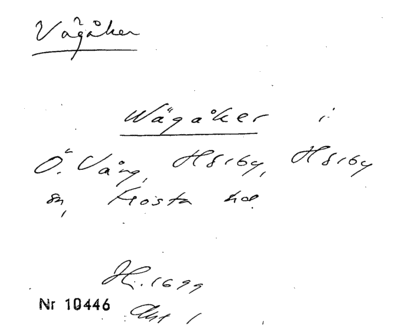 Vägåker
Wägåker i
Ö. Vång, Hörby, Hörby
sn, Frosta hd.
Hj. 1699
Nr 10446
Akt 1